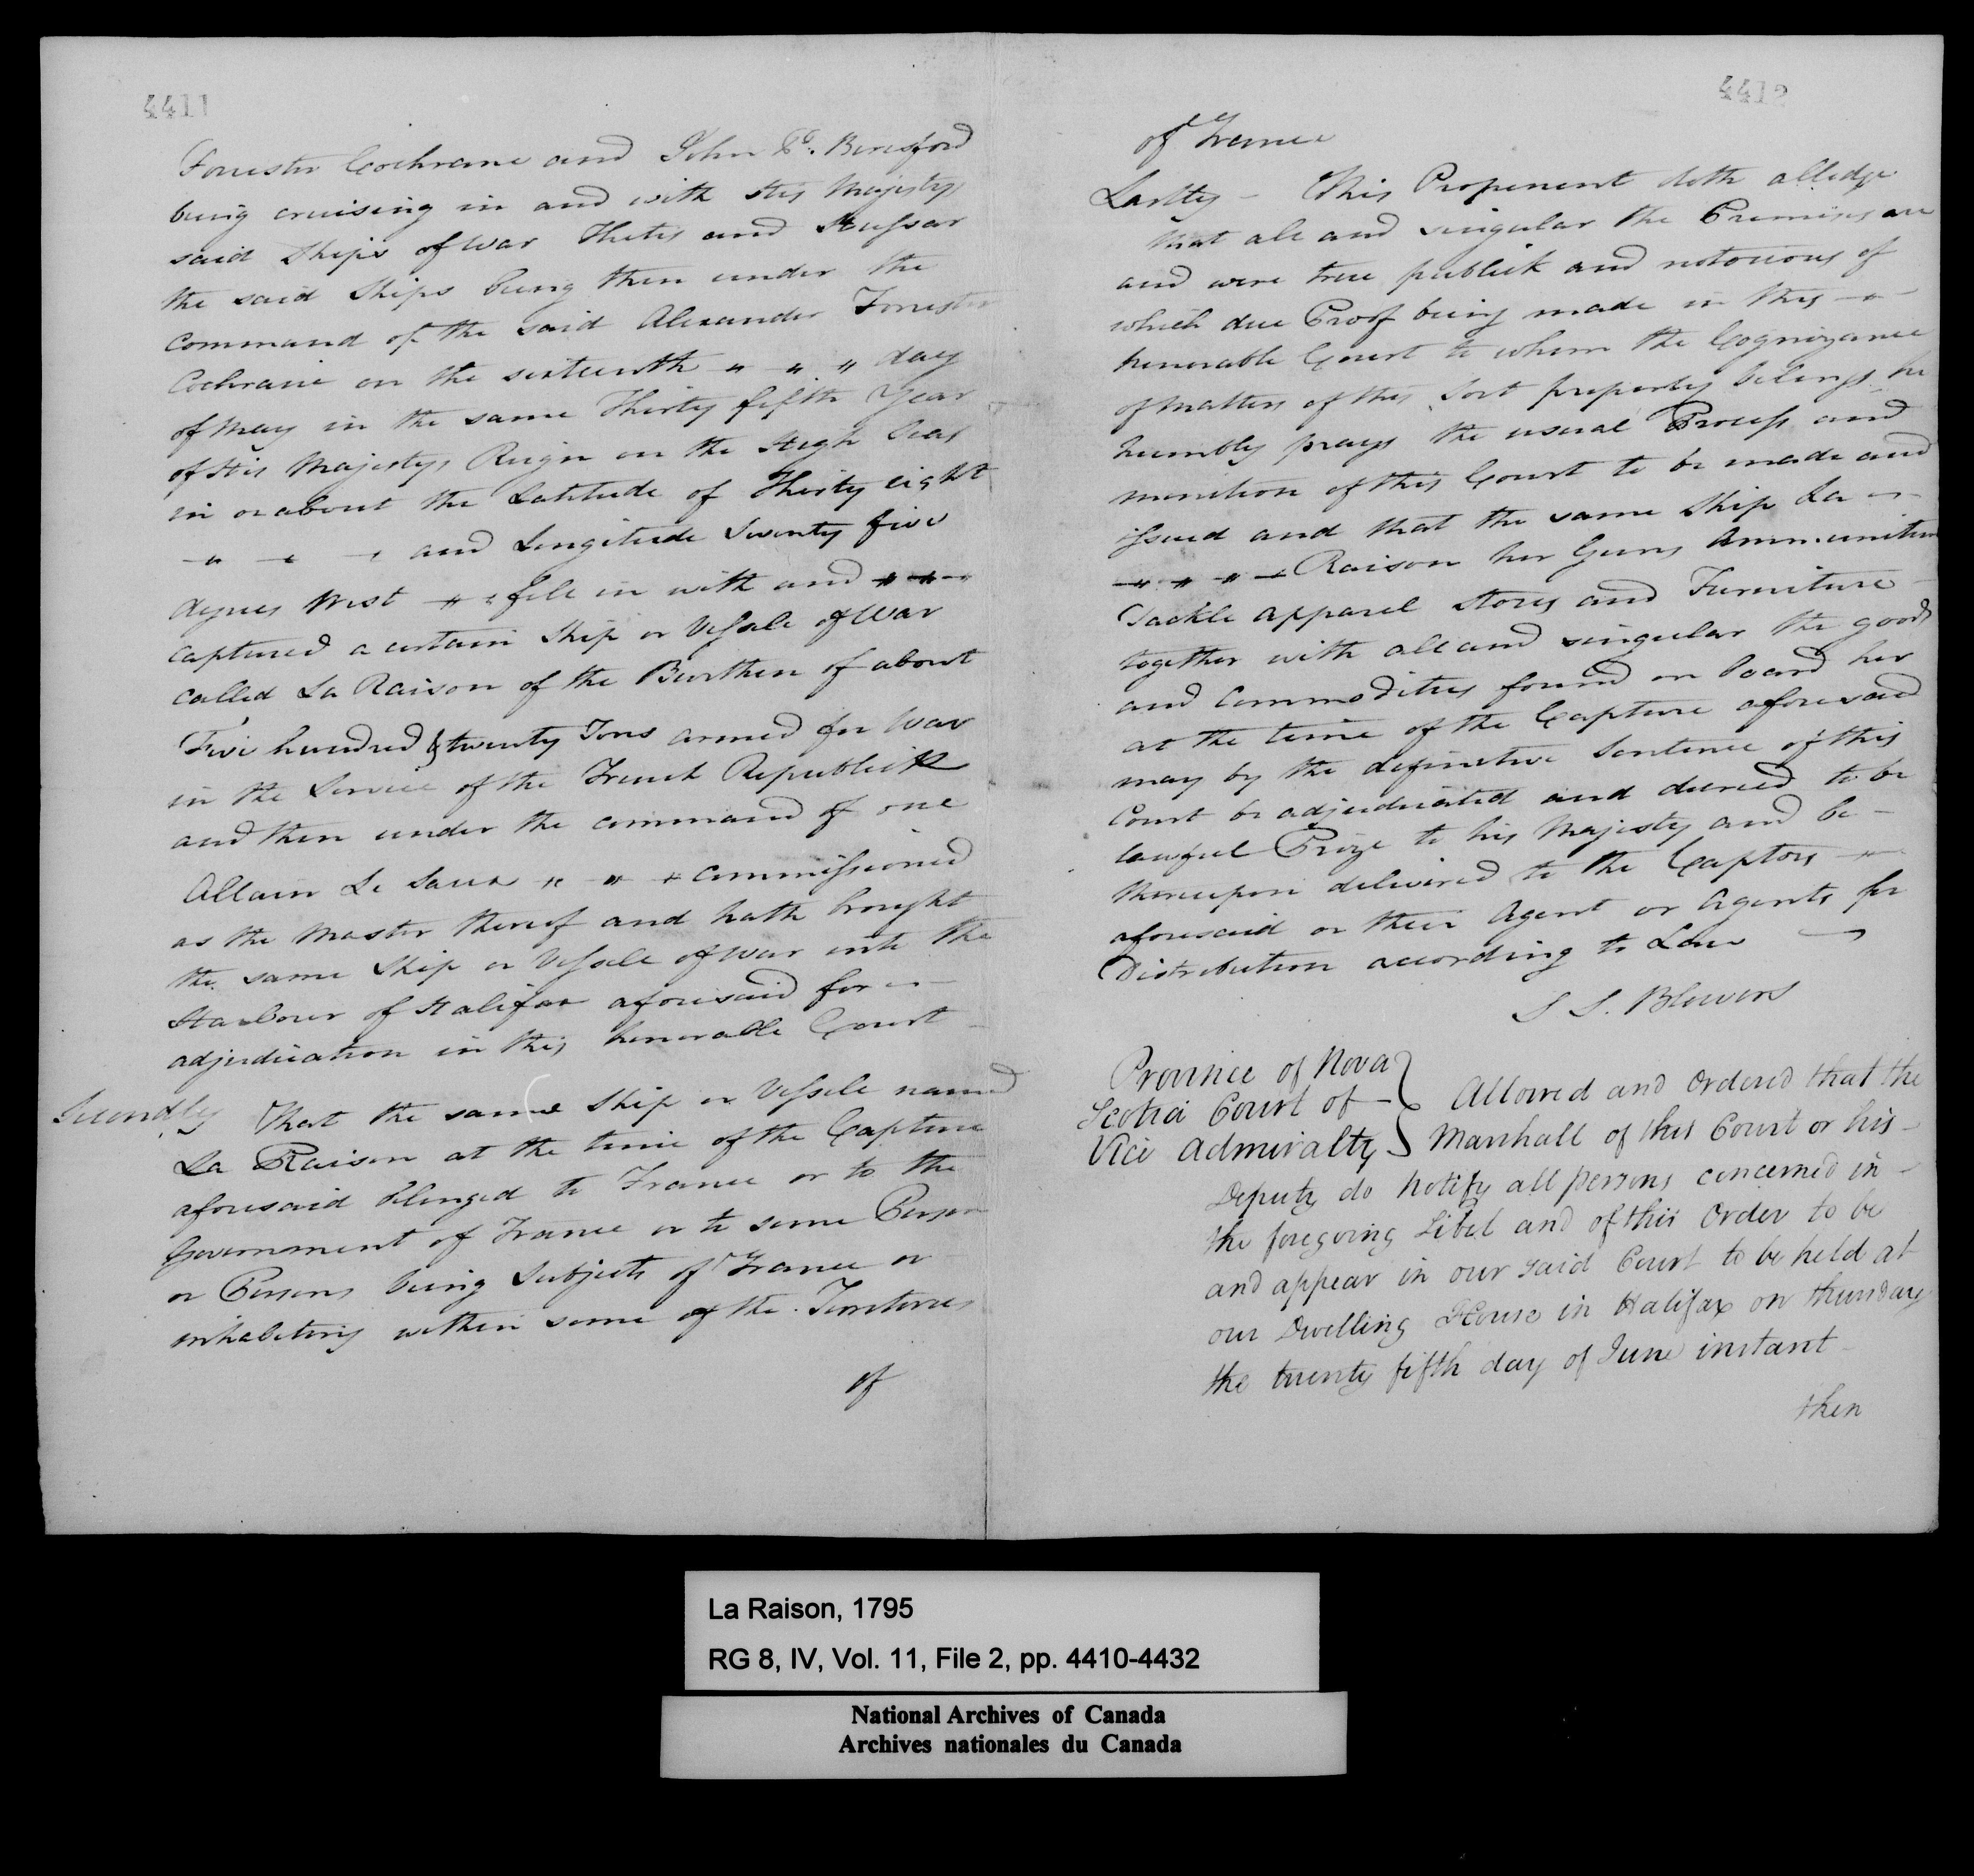 4411
Forrester Cochrane and John Po. Beresford
being cruising in and with His Majestys
said Ships of War Thetis and Hussar
the said Ships being then under the
Command of the said Alexander Forrester
Cochrane on the sixteenth " " " day
of May in the same Thirty fifth Year
of His Majestys Reign on the High Seas
in or about the Latitude of Thirty eight
and Longitude Seventy five
degrees West fell in with and
captured a certain Ship or Vessell of War
called La Raison of the Burthen of about
Five hundred & twenty Tons armed for War
in the Service of the French Republick
and then under the command of one
Allain Le Saux " " " commissioned
as the Master thereof and hath brought
the same Ship or Vessell of War into the
Harbour of Halifax aforesaid for
adjudication in this honorable Court
Secondly That the same Ship or Vessell named
La Raison at the time of the Capture
aforesaid belonged to France or to the
Government of France or to some Person
or Persons being Subjects of France or
inhabiting within some of the Territories
of
4412
of France
Lastly - This Proponent doth alledge
that all and singular the Premises are
and were true publick and notorious of
which due Proof being made in this
honorable Court to whom the Cognizance
of matters of this Sort properly belongs he
humbly prays the usual Process and
monition of this Court to be made and
issued and that the same Ship La
" " " " Raison her Guns Ammunition
Tackle Apparel Stores and Furniture
together with all and singular the goods
and Commodities found on board her
at the time of the Capture aforesaid
may by the definitive Sentence of this
Court be adjudicated and decreed to be
lawful Prize to his Majesty and be -
thereupon delivered to the Captors
aforesaid or their Agent or Agents for
Distribution according to Law
S S. Blowers
Province of Nova
Scotia Court of
Vice Admiralty } Allowed and Ordered that the
Marshall of this Court or his -
Deputy do notify all persons concerned in -
the foregoing Libel and of this Order to be
and appear in our said Court to be held at
our Dwelling House in Halifax on thursday
the twenty fifth day of June instant -
then
La Raison, 1795
RG 8, IV, Vol. 11, File 2, pp. 4410-4432
National Archives of Canada
Archives nationales du Canada